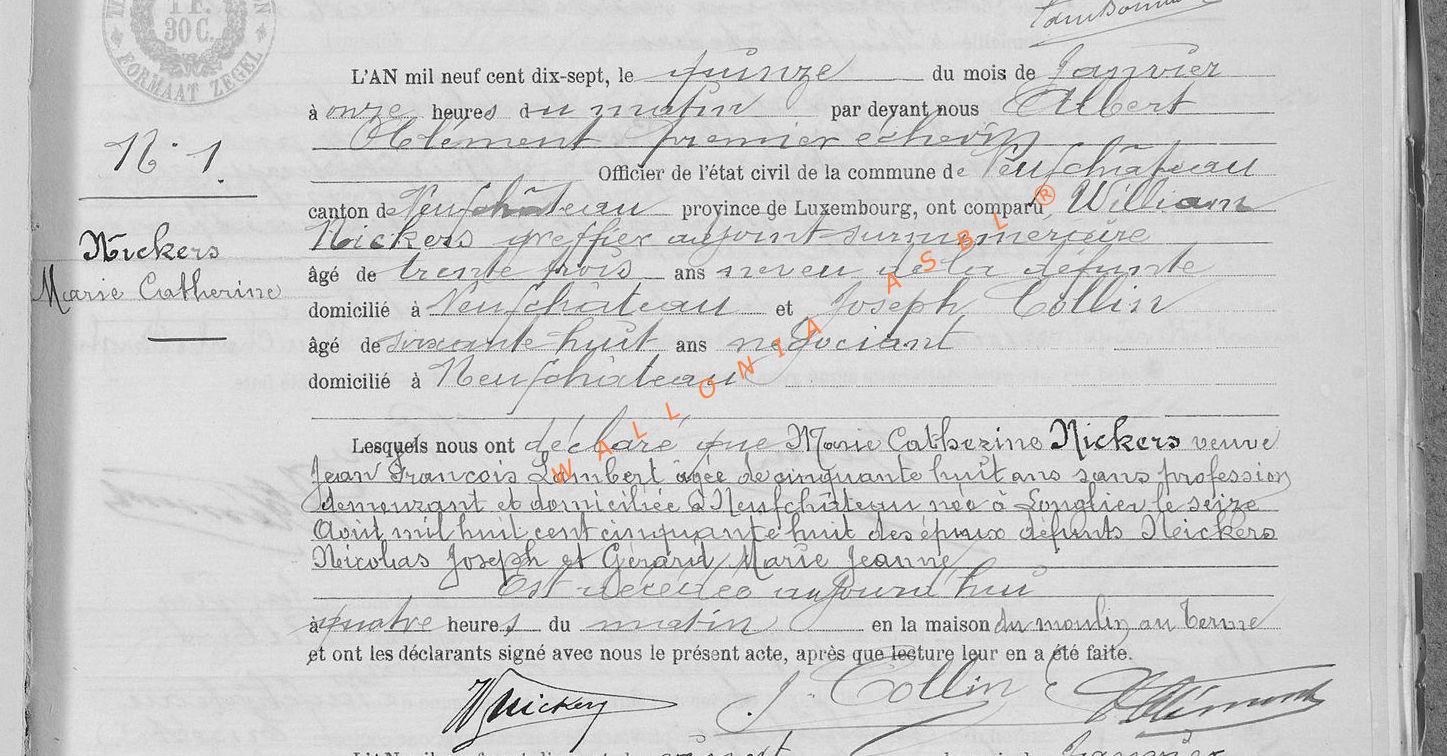 1 F.
30 C.
FORMAAT ZEGEL
L'AN mil neuf cent dix-sept, le quinze du mois de Janvier
à onze heures du matin par devant nous Albert
Clément premier échevin
N° 1.
Officier de l'état civil de la commune de Neufchâteau
canton de Neufchâteau province de Luxembourg, ont comparu William
Nickers greffier adjoint surnuméraire
Nickers
Marie Catherine
âgé de trente trois ans neveu de la défunte
domicilié à Neufchâteau et Joseph Collin
âgé de soixante-huit ans négociant
domicilié à Neufchâteau
WALLONIA ASBL ®
Lesquels nous ont déclaré que Marie Catherine Nickers veuve
Jean François Lambert agée de cinquante huit ans sans profession
demeurant et domiciliée à Neufchâteau née à Longlier le seize
Août mil huit cent cinquante huit des époux défunts Nickers
Nicolas Joseph et Gérard Marie Jeanne
Est décédée aujourd'hui
à quatre heures du matin en la maison du moulin au Terme
et ont les déclarants signé avec nous le présent acte, après que lecture leur en a été faite.
W Nickers J. Collin Clément